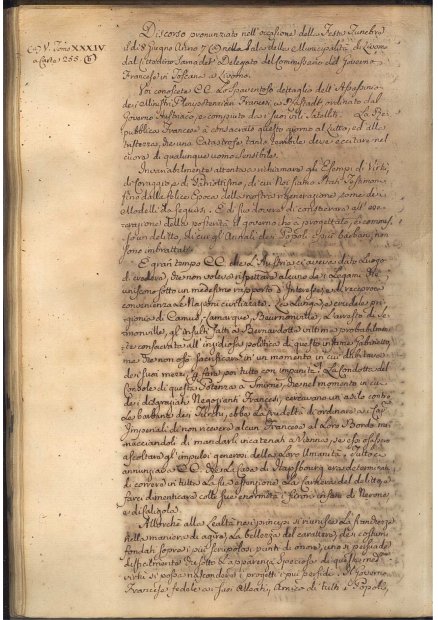 Discorso pronunziato nell'occasione della Festa Funebre
il dì 8 Giugno Anno 7 nella Sala della Municipalità di Livorno
dal Cittadino Delegato del Commissario del Governo
Francese in Toscana a Livorno.
(a) V. Tomo XXXIV
a Carte 255. (b)
Voi conoscete CC. lo spaventoso dettaglio dell'Assassinio
dei Ministri Plenipotenziari Francesi a Rastadt, ordinato dal
Governo Austriaco, e compiuto da i suoi vili Satelliti. La Re-
pubblica Francese à consacrato questo giorno al lutto, ed alla
tristezza, che una Catastrofe tanto terribile deve eccitare nel
cuore di qualunque uomo sensibile.
Invariabilmente attento a richiamare gli Esempi di Virtù,
di Coraggio, e di Patriottismo, di cui Noi siamo stati Testimoni
fino dalla felice Epoca della nostra rigenerazione, come dei
Modelli da seguirsi. È di suo dovere di consacrare all'ese-
crazione della posterità il governo che à progettato, e commes-
so un delitto, di cui gli Annali dei Popoli i più barbari, non
sono imbrattati.
È gran tempo CC. che l'Austria ci aveva dato luogo
di credere, che non voleva rispettare alcuno dei Legami che
uniscono sotto un medesimo rapporto d'Interesse, e di reciproca
convenienza le Nazioni civilizzate. La lunga, e crudele pri-
gionia di Camus, Lamarque, Bournonville, l'arresto di Se-
monville, gl'insulti fatti a Bernardotte vittima probabilmen-
te consacrata all'insidiosa politica di questo infame Gabinetto,
ma che non osò sacrificare in un momento in cui dubitava
dei suoi mezzi, per farlo con tutta impunità. La Condotta del
Console di questa Potenza a Smirne, che nel momento in cui
dei disgraziati Negozianti Francesi, cercavano un asilo contro
la barbarie dei Turchi, ebbe la crudeltà di ordinare ai Cap.
Imperiali di non ricevere alcun Francese al loro Bordo mi-
nacciandoli di mandarli incatenati a Vienna, se essi osassero
ascoltare gl'impulsi generosi della loro Umanità. Tutto ci
annunziava CC. che la Casa di Hapsbourg era determinata
di correre in tutta la sua estensione la Carriera del delitto, e
farci dimenticare colle sue enormità i furori insensati di Nerone,
e di Caligola.
Allorchè alla Lealtà nei principj si riunisce la franchezza
nella maniera di agire, la bellezza del carattere, dei costumi
fondati sopra i più scrupolosi punti di onore, uno si persuade
difficilmente che sotto l'apparenza speciosa di queste mede-
virtù si possa nascondere i progetti i più perfidi. Il Governo
Francese fedele coi suoi Alleati, Amico di tutti i Popoli,